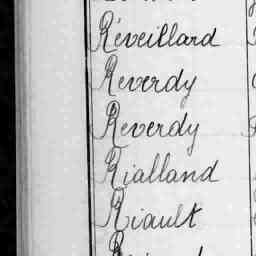 Réveillard
Reverdy
Reverdy
Rialland
Riault